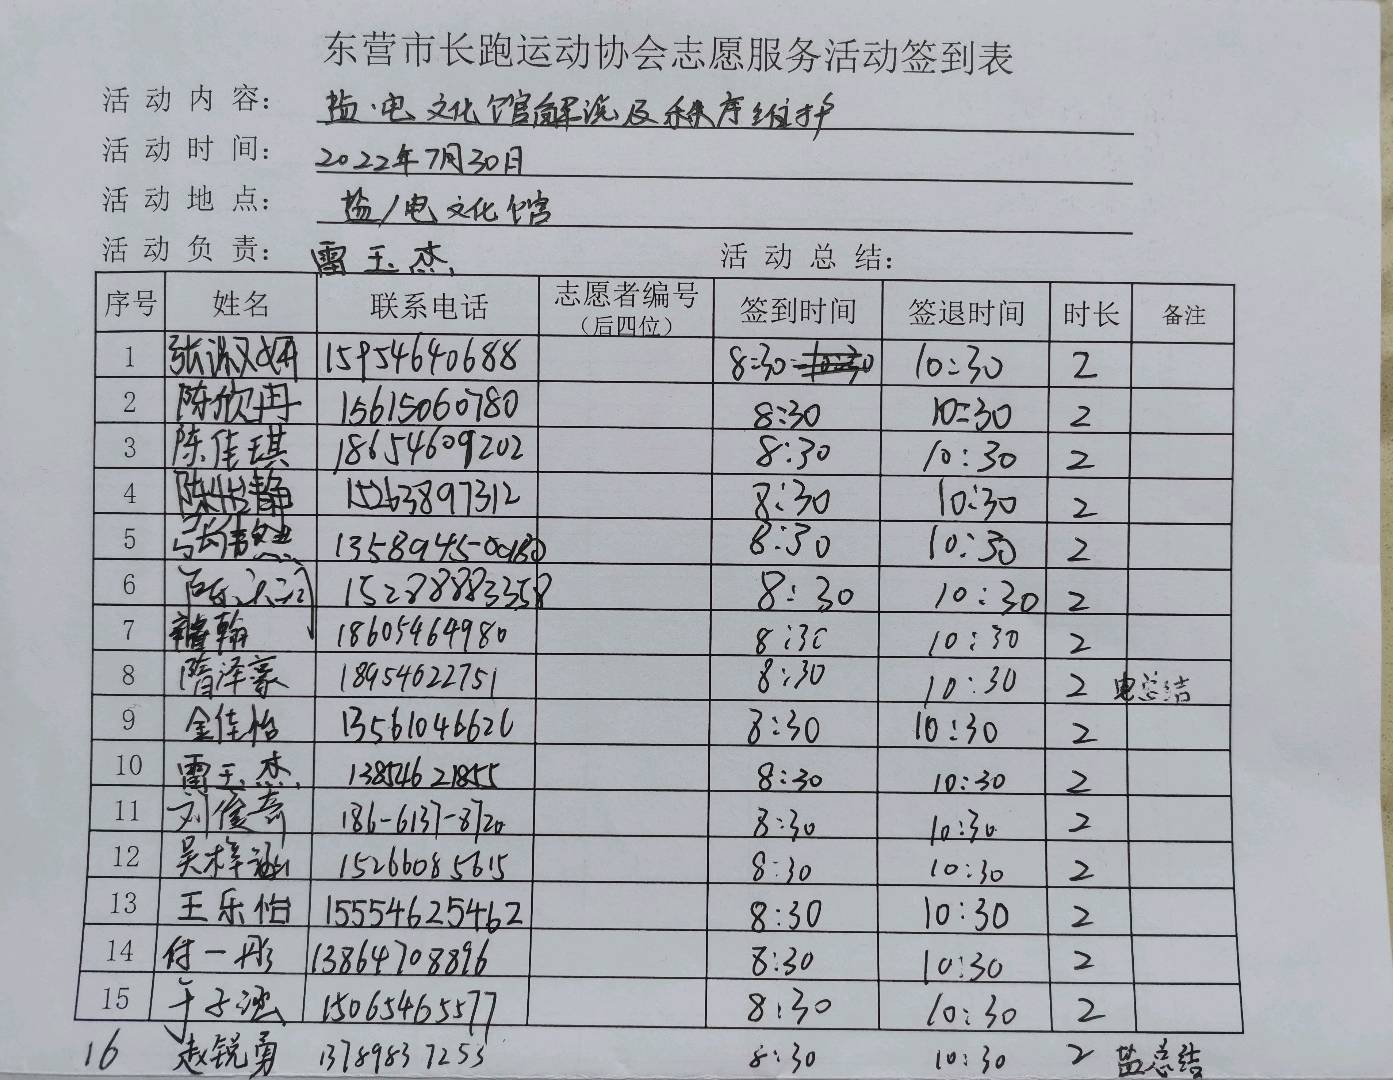 东营市长跑运动协会志愿服务活动签到表
活动内容： 盐·电文化馆解说及秩序维护
活动时间： 2022年7月30日
活动地点： 盐/电文化馆
活动负责： 雷玉杰 活动总结：
序号 姓名 联系电话 志愿者编号（后四位） 签到时间 签退时间 时长 备注
1 张淑妍 15954640688 8:30 10:30 2
2 陈欣冉 15615060780 8:30 10:30 2
3 陈佳琪 18654609202 8:30 10:30 2
4 15263897312 8:30 10:30 2
5 8:30 10:30 2
6 15288883358 8:30 10:30 2
7 翰 18605464980 8:30 10:30 2
8 隋泽豪 18954622751 8:30 10:30 2 电总结
9 金佳怡 13561046626 8:30 10:30 2
10 雷玉杰 13854621855 8:30 10:30 2
11 刘俊奇 186-6137-8720 8:30 10:30 2
12 吴梓涵 15266085615 8:30 10:30 2
13 王乐怡 15554625462 8:30 10:30 2
14 付一彤 13864708896 8:30 10:30 2
15 于子涵 15065465577 8:30 10:30 2
16 赵锐勇 13789837253 8:30 10:30 2 盐总结